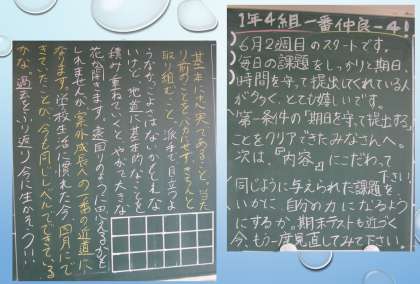 基本に忠実であること、当た
り前のことをバカにせずきちんと
取り組むこと、派手で目立つよ
うなかっこよさはないかもしれな
いけど、地道に基本的なことを
積み重ねていくと、やがて大きな
花が開きます。遠回りのように思えるかも
しれませんが、案外成長への一番の近道に
なります。学校生活に慣れた今、四月にで
きていたことが今も同じレベルでできている
かな。過去をふり返り、今に生かそう!!
1年4組一番仲良-4!
6月2週目のスタートです。
毎日の課題をしっかりと期日、
時間を守って提出してくれている人
が多く、とても嬉しいです。
第一条件の「期日を守って提出する」
ことをクリアできたみなさんへ。
次は、『内容』にこだわって
下さい!
同じように与えられた課題を
いかに、自分の力になるよう
にするか。期末テストも近づく
今、もう一度見直してみて下さい。